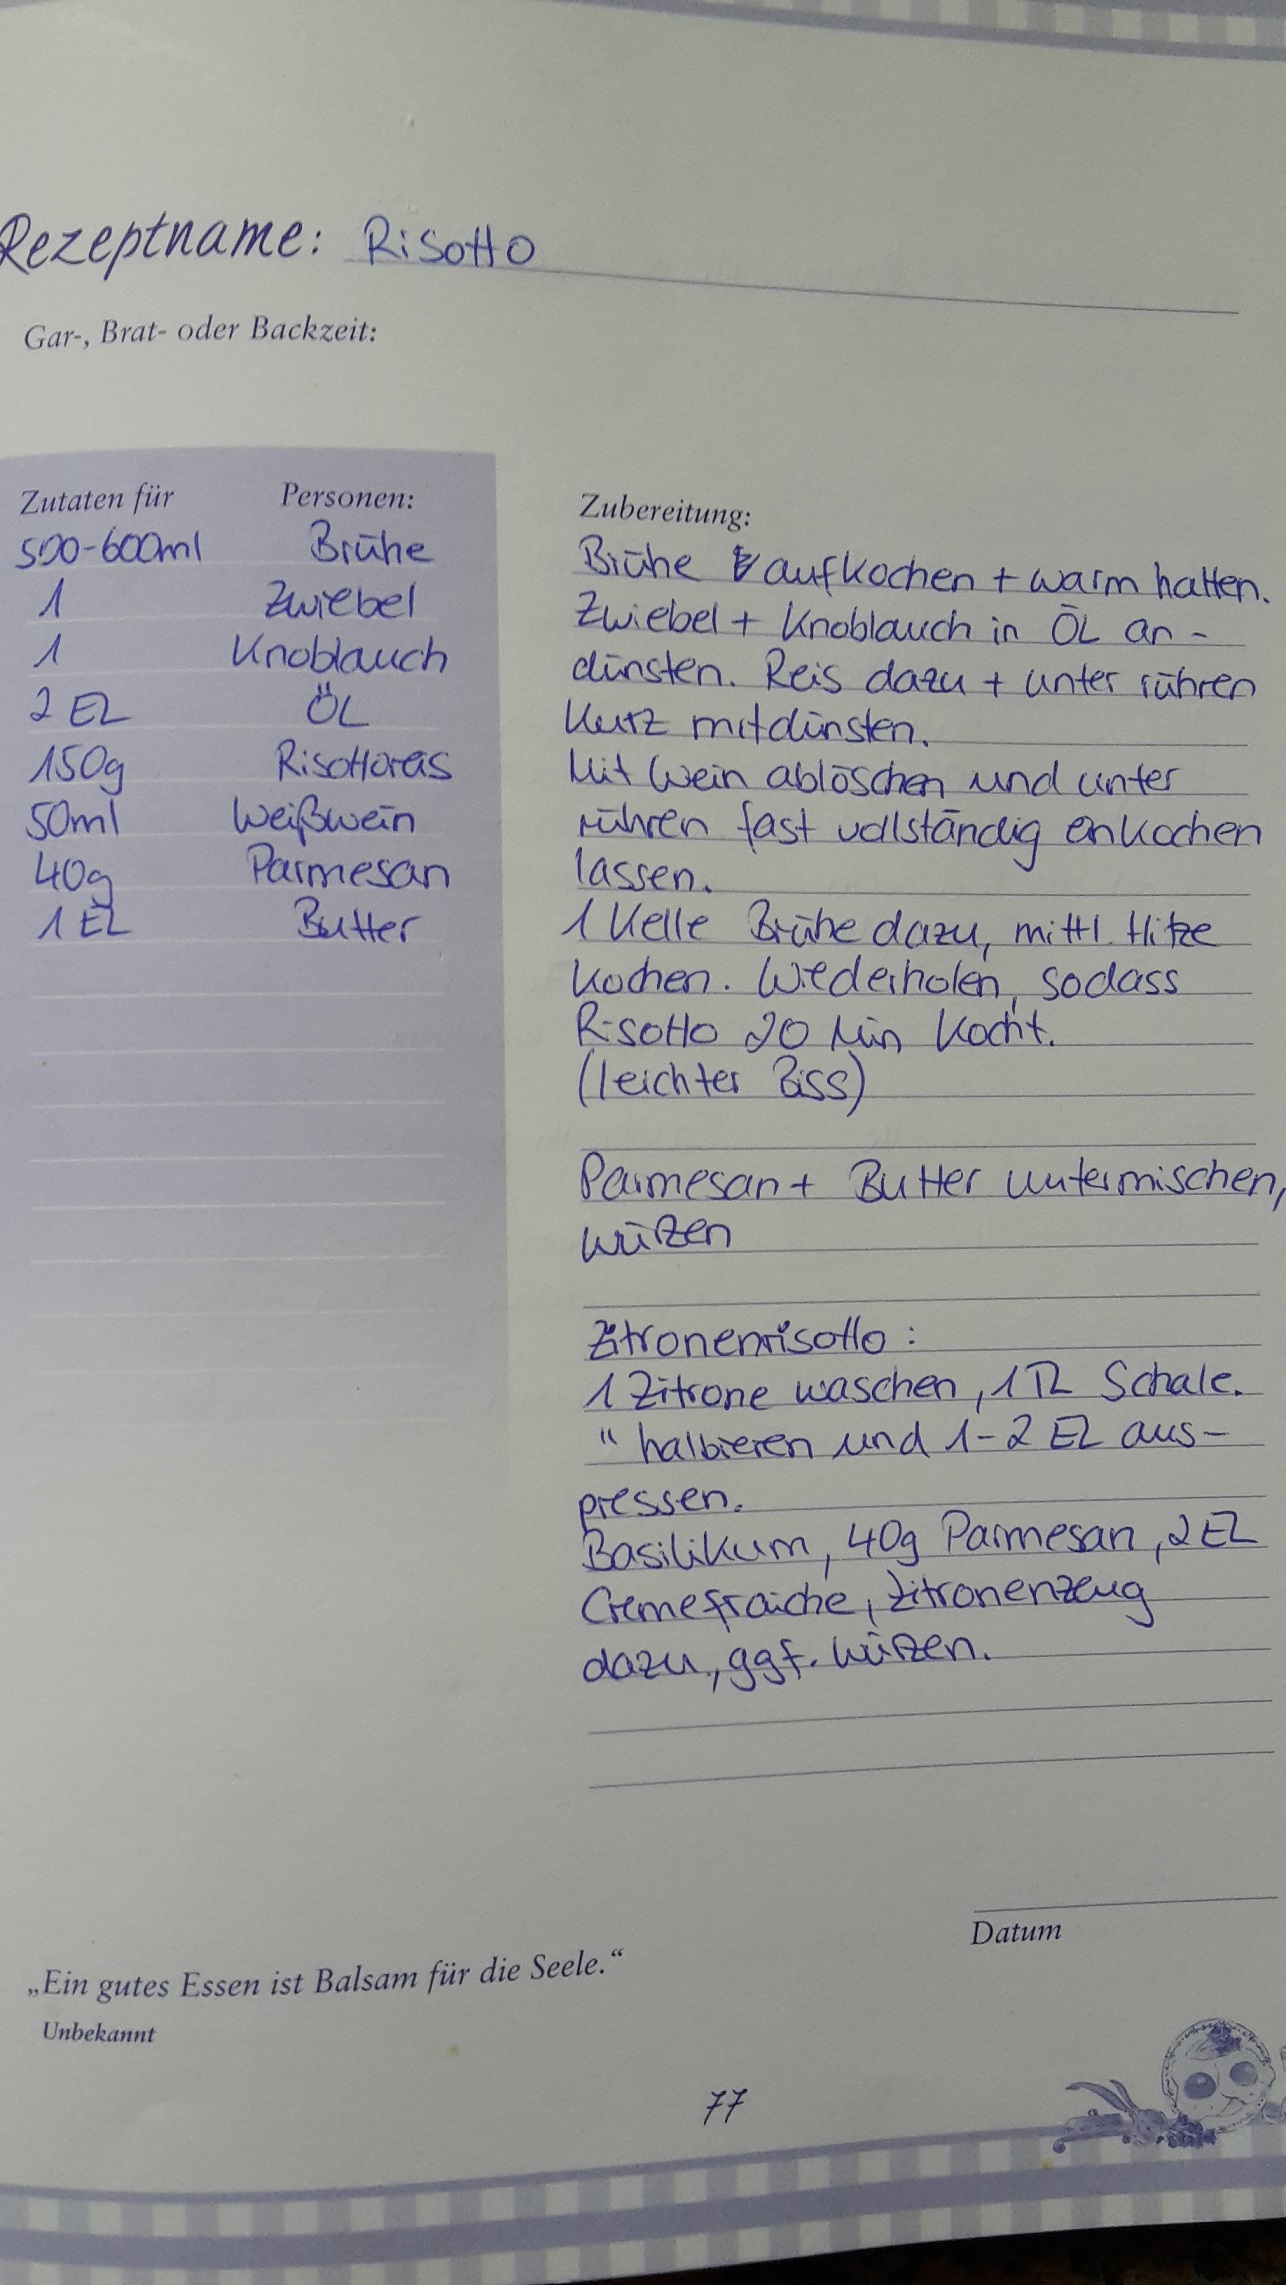 Rezeptname: Risotto
Gar-, Brat- oder Backzeit:
Zutaten für Personen:
500-600ml Brühe
1 Zwiebel
1 Knoblauch
2 EL ÖL
150g Risottoreis
50ml Weißwein
40g Parmesan
1 EL Butter
Zubereitung:
Brühe aufkochen + warm halten.
Zwiebel + Knoblauch in ÖL an-
dünsten. Reis dazu + unter rühren
kurz mitdünsten.
Mit Wein ablöschen und unter
rühren fast vollständig einkochen
lassen.
1 Kelle Brühe dazu, mittl. Hitze
kochen. Wiederholen, sodass
Risotto 20 Min kocht.
(leichter Biss)
Parmesan + Butter untermischen,
würzen
Zitronenrisotto:
1 Zitrone waschen, 1 TL Schale.
" halbieren und 1-2 EL aus-
pressen.
Basilikum, 40g Parmesan, 2 EL
Cremefraiche, Zitronenzeug
dazu, ggf. würzen.
Datum
„Ein gutes Essen ist Balsam für die Seele.“
Unbekannt
77